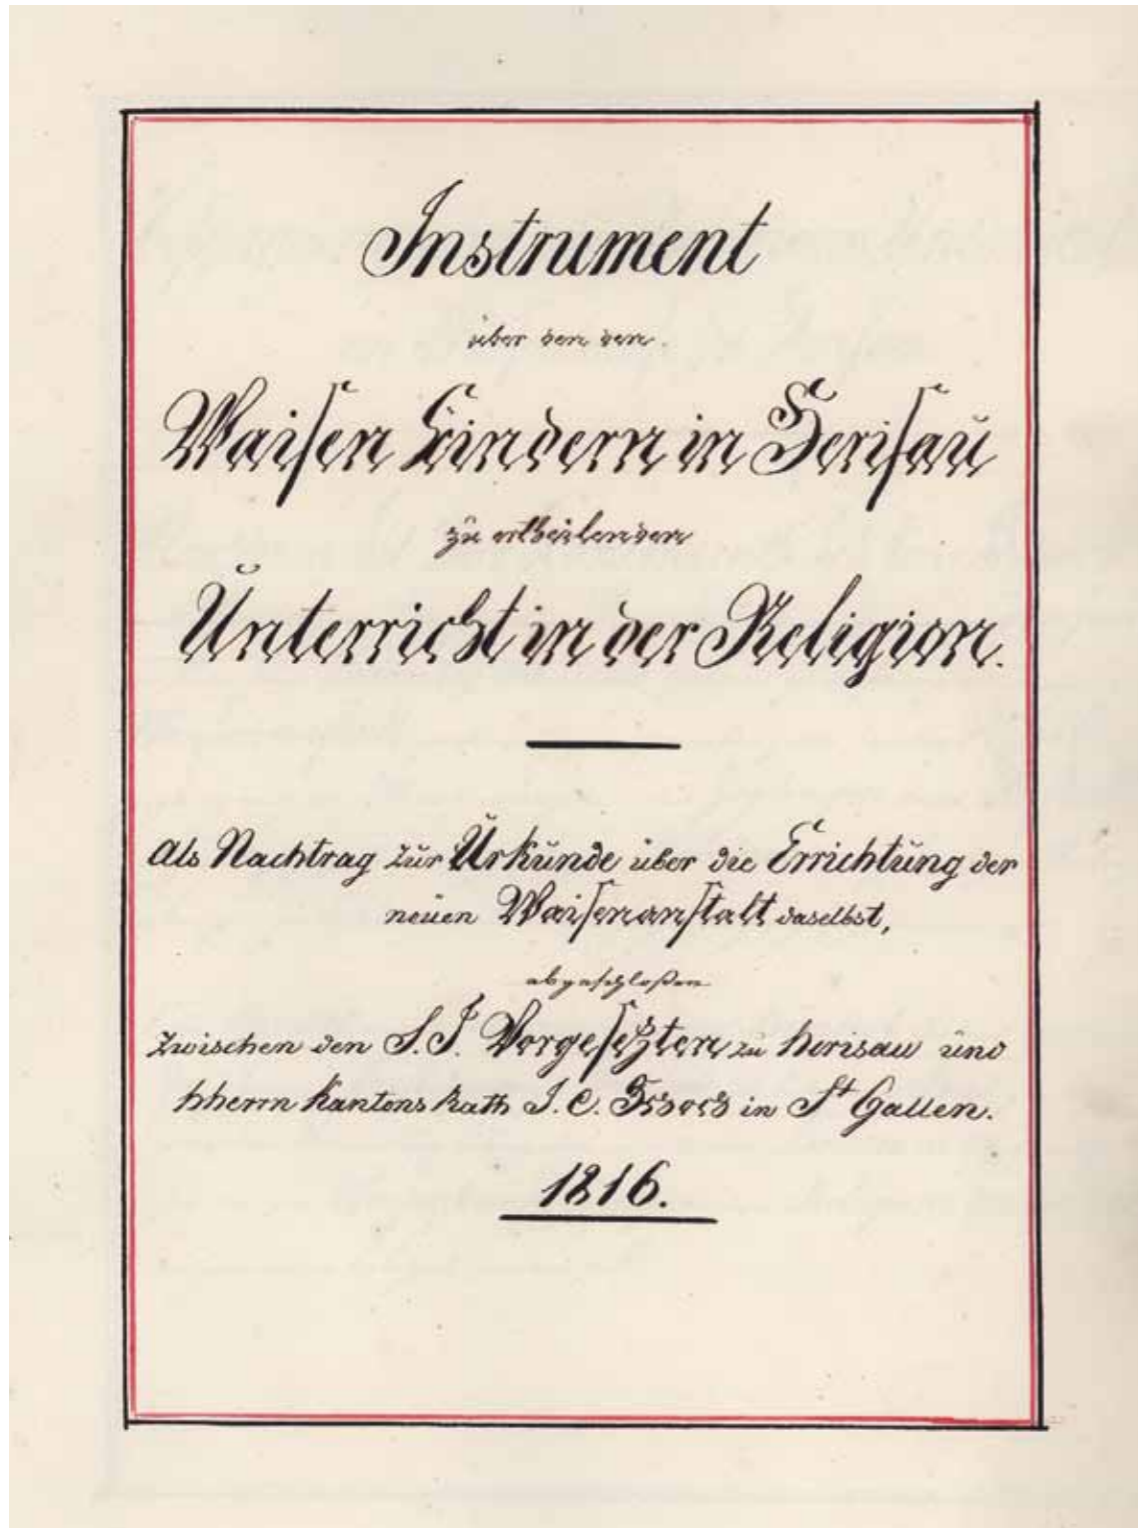 Instrument
über den den
Waisen Kindern in Herisau
zu ertheilenden
Unterricht in der Religion.
Als Nachtrag zur Urkunde über die Errichtung der
neuen Waisenanstalt daselbst,
abgeschloßen
zwischen den S. T. Vorgesetzten zu Herisau und
HHerrn Kantons Rath J. C. in St Gallen.
1816.